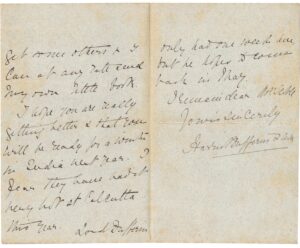 Get some others & I
can at any rate send
my own little book.
I hope you are really
getting better & that you
will be ready for a winter
in India next year. I
hear they have had it
very hot at Calcutta
this year.
Lord Dufferin
only had one week
but he hopes to come
back in May.
I remain dear
Yours sincerely